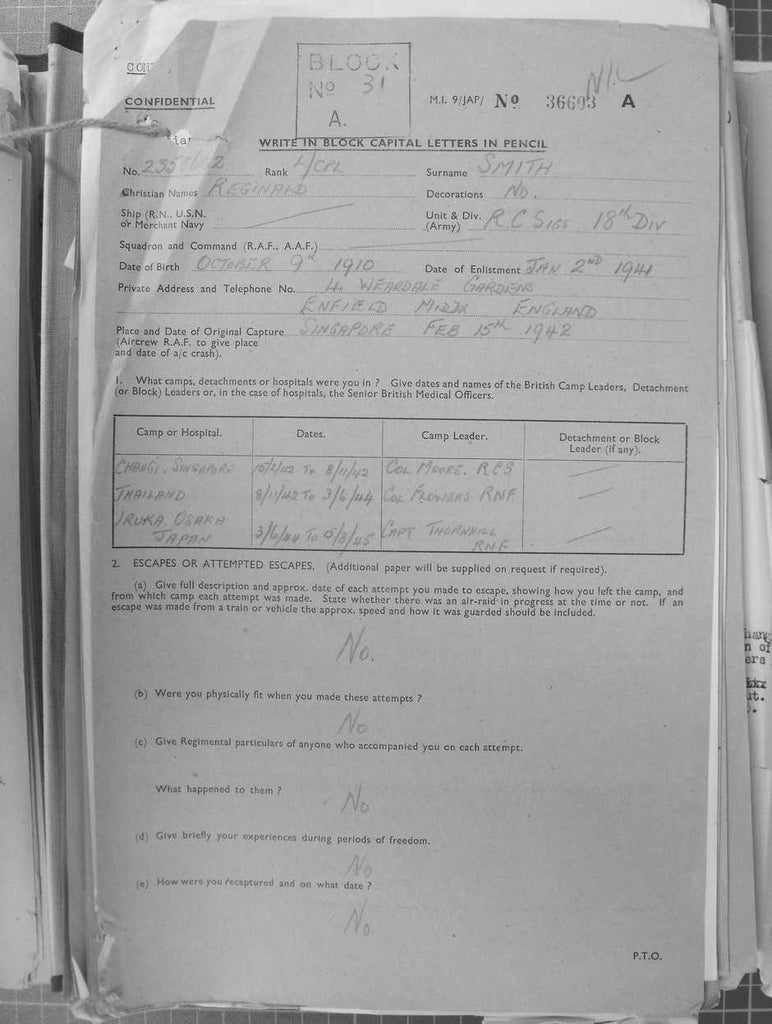 BLOCK
CONFIDENTIAL
No 31
A.
M.I. 9/JAP/ No A
WRITE IN BLOCK CAPITAL LETTERS IN PENCIL
No. Rank L/CPL Surname SMITH
Christian Names REGINALD Decorations NO.
Ship (R.N., U.S.N. or Merchant Navy
Unit & Div. (Army) R.C. SIGS 18TH DIV
Squadron and Command (R.A.F., A.A.F.)
Date of Birth OCTOBER 9th 1910 Date of Enlistment JAN 2ND 1941
Private Address and Telephone No. 4. WEARDALE GARDENS
ENFIELD MIDDX ENGLAND
Place and Date of Original Capture SINGAPORE FEB 15th 1942
(Aircrew R.A.F. to give place
and date of a/c crash).
1. What camps, detachments or hospitals were you in ? Give dates and names of the British Camp Leaders, Detachment
(or Block) Leaders or, in the case of hospitals, the Senior British Medical Officers.
Camp or Hospital. Dates. Camp Leader. Detachment or Block
Leader (if any).
CHANGI. SINGAPORE 15/2/42 TO 8/11/42 COL MOORE. RCS
THAILAND 8/11/42 TO 3/6/44 COL FLOWERS RNF
IRUKA OSAKA
JAPAN 3/6/44 TO 15/8/45 CAPT THORNHILL
RNF
2. ESCAPES OR ATTEMPTED ESCAPES. (Additional paper will be supplied on request if required).
(a) Give full description and approx. date of each attempt you made to escape, showing how you left the camp, and
from which camp each attempt was made. State whether there was an air-raid in progress at the time or not. If an
escape was made from a train or vehicle the approx. speed and how it was guarded should be included.
NO.
(b) Were you physically fit when you made these attempts ?
NO
(c) Give Regimental particulars of anyone who accompanied you on each attempt.
What happened to them ?
NO
(d) Give briefly your experiences during periods of freedom.
NO
(e) How were you recaptured and on what date ?
NO
P.T.O.